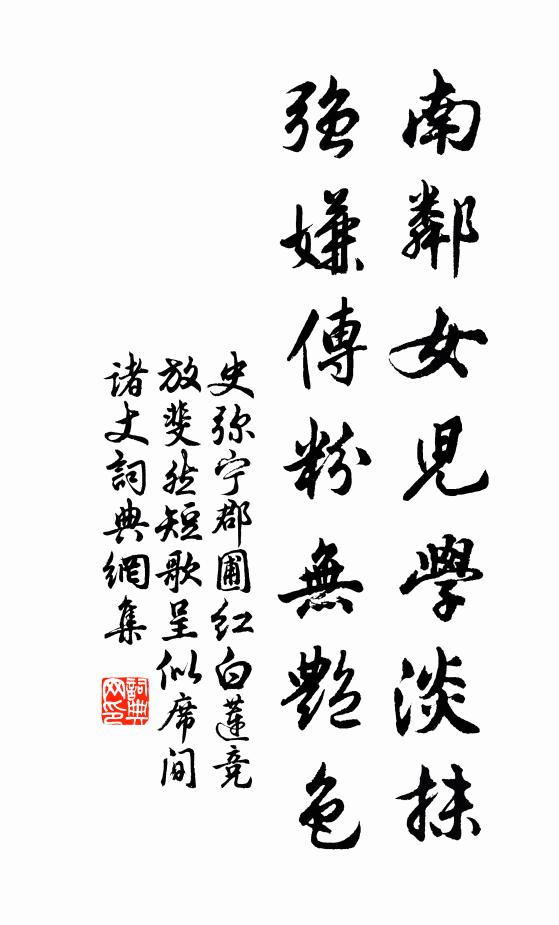 南鄰女兒學淡抹
強嫌傅粉無艷色
史弥宁郡圃红白蓮竞
放斐然短歌呈似席间
诸丈詞典網集
詞典网印